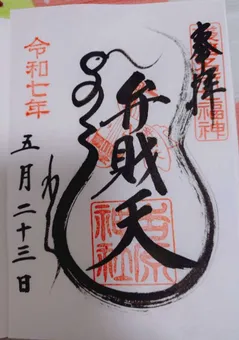 奉拝
福神
弁財天
吉原
神社
令和七年
五月二十三日